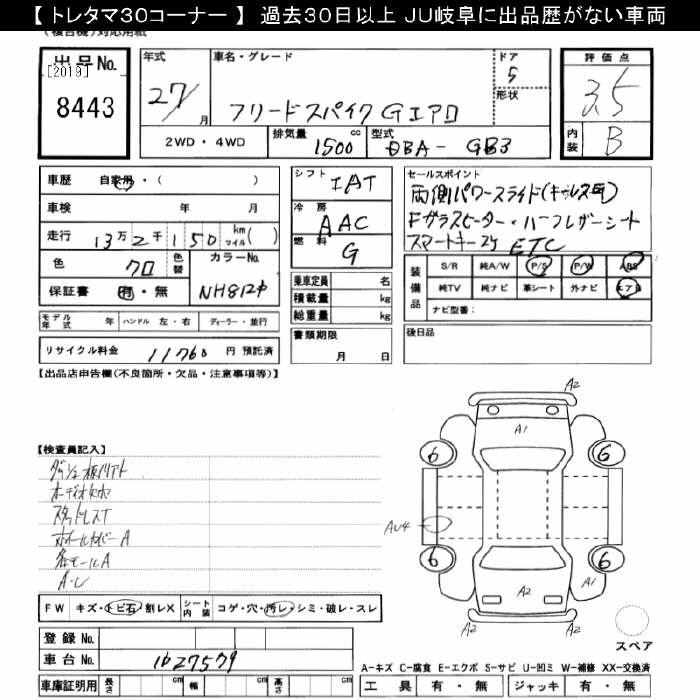 【 トレタマ30コーナー 】 過去30日以上 JU岐阜に出品歴がない車両
出品No.
[2019]
8443
年式
27/
月
車名・グレード
フリードスパイク Gエアロ
ドア
5
形状
評価点
3.5
内装
B
2WD・4WD
排気量
1500
cc
型式
DBA - GB3
車歴
自家用・( )
車検
年 月
走行
13万2千150
km
マイル( )
色
クロ
色替
カラーNo.
NH812P
保証書
有・無
シフト
IAT
冷房
AAC
燃料
G
乗車定員
名
積載量
kg
総重量
kg
セールスポイント
両側パワースライド(
Fガラスヒーター・ハーフレザーシート
スマートキー2ケ ETC
装備品
S/R
純A/W
P/S
P/W
ABS
純TV
純ナビ
革シート
外ナビ
エアB
ナビ型番:
モデル年式
年
ハンドル 左・右
ディーラー・並行
書類期限
月 日
後日品
リサイクル料金
11760
円 預託済
【出品店申告欄(不良箇所・欠品・注意事項等)】
【検査員記入】
スタッドレスT
ホイールカバーA
各モールA
A・U
A2
A1
6
6
AU4
6
6
A2
A1
A2
スペア
FW
キズ・トビ石・割レX
シート内装
コゲ・穴・汚レ・シミ・破レ・スレ
登録No.
車台No.
1027579
車庫証明用
長さ
cm
幅
cm
高さ
cm
A-キズ C-腐食 E-エクボ S-サビ U-凹ミ W-補修 XX-交換済
工具
有・無
ジャッキ
有・無